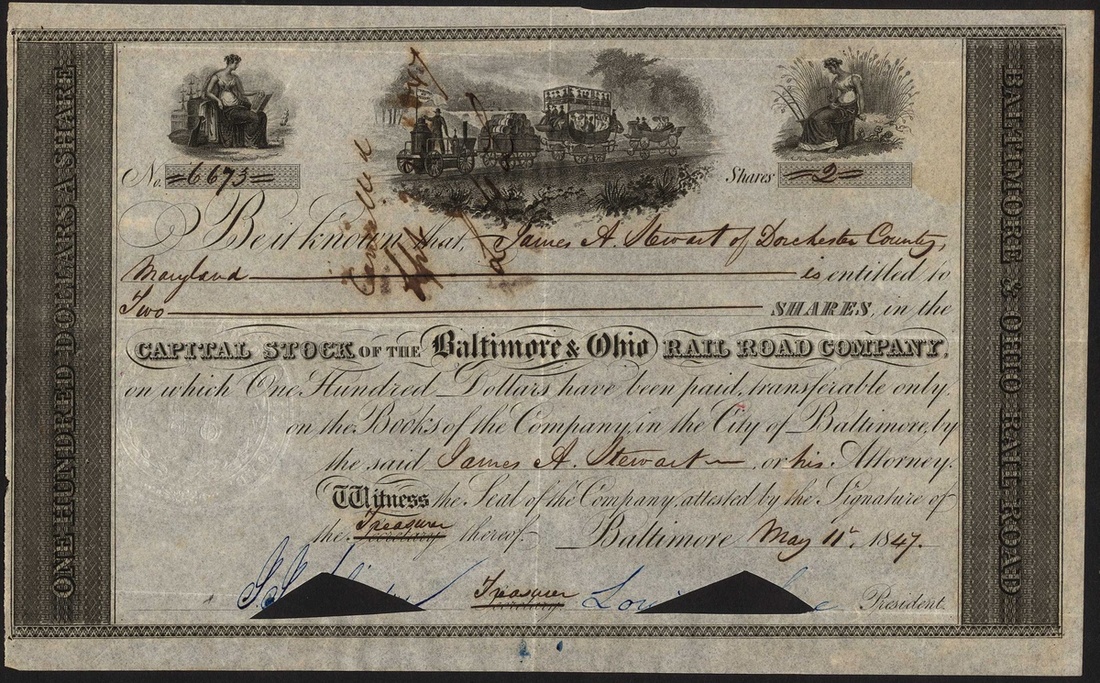 ONE HUNDRED DOLLARS A SHARE.
No. 6673
Shares 2
Be it known that, James A. Stewart of Dorchester County,
Maryland is entitled to
Two SHARES, in the
CAPITAL STOCK OF THE Baltimore & Ohio RAIL ROAD COMPANY,
on which One Hundred Dollars have been paid, transferable only
on the Books of the Company, in the City of Baltimore, by
the said James A. Stewart or his Attorney.
Witness the Seal of the Company, attested by the Signature of
the Treasurer Secretary thereof. Baltimore May 11th, 1847.
Treasurer Secretary President.
BALTIMORE & OHIO RAIL ROAD
Cancelled